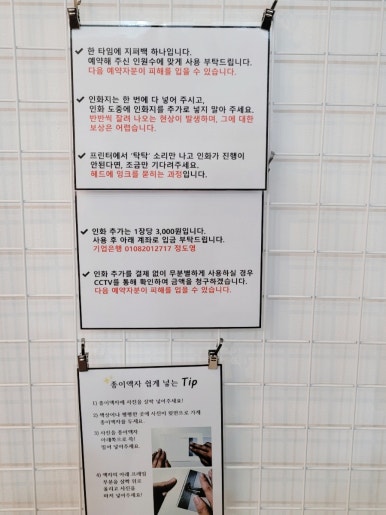 ✓ 한 타임에 지퍼백 하나입니다.
예약해 주신 인원수에 맞게 사용 부탁드립니다.
다음 예약자분이 피해를 입을 수 있습니다.
✓ 인화지는 한 번에 다 넣어 주시고,
인화 도중에 인화지를 추가로 넣지 말아 주세요.
반반씩 잘려 나오는 현상이 발생하며, 그에 대한
보상은 어렵습니다.
✓ 프린터에서 '탁탁' 소리만 나고 인화가 진행이
안된다면, 조금만 기다려주세요.
헤드에 잉크를 묻히는 과정입니다.
✓ 인화 추가는 1장당 3,000원입니다.
사용 후 아래 계좌로 입금 부탁드립니다.
기업은행 01082012717 정도영
✓ 인화 추가를 결제 없이 무분별하게 사용하실 경우
CCTV를 통해 확인하여 금액을 청구하겠습니다.
다음 예약자분이 피해를 입을 수 있습니다.
종이액자 쉽게 넣는 Tip
1) 종이액자에 사진을 살짝 넣어주세요!
2) 책상이나 평평한 곳에 사진이 윗면으로 가게
종이액자를 두세요.
3) 사진을 종이액자
아래쪽으로 쭉!
밀어 넣어주세요.
4) 액자의 아래 프레임
부분을 살짝 위로
올리고 사진을
마저 넣어주세요!